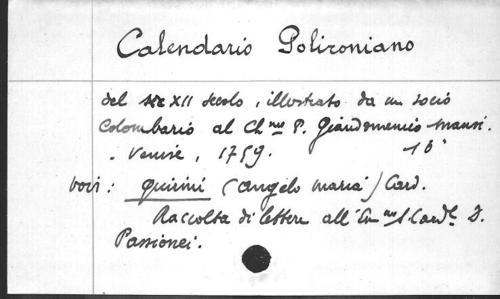 Calendario Polironiano
del XII secolo, illustrato da un socio
Colombario al Ch.mo P. Giandomenico Mansi.
. Venise, 1759. 16°
voci: Quirini (Angelo Maria) Card.
Raccolta di lettere all' Em.mo S. Card.le D.
Passionei.